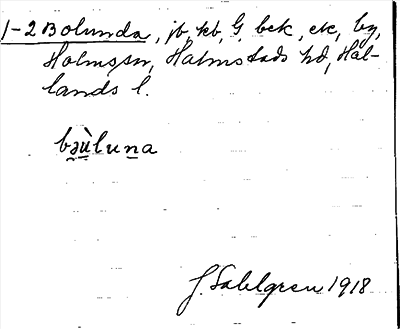 1-2 Bolunda, jb, kb, G. bek, ek, by,
Holms sn, Halmstads hd, Hal-
lands l.
bəùluna
J. Sahlgren 1918